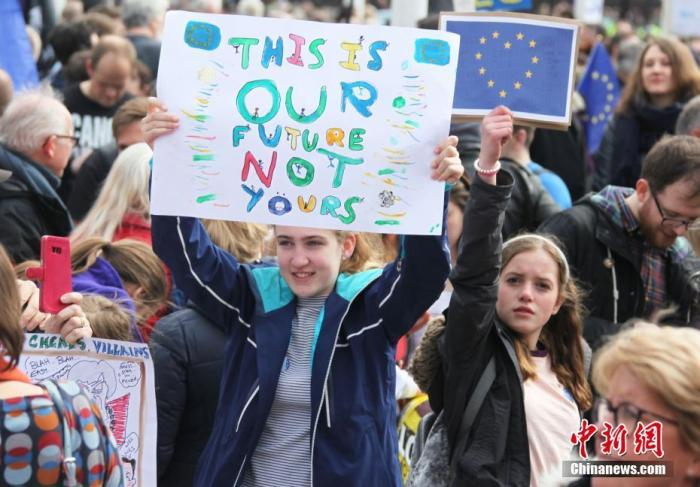 THIS IS
OUR
FUTURE
NOT
YOURS
CAN
VILLAINS
BLAH
BLAH
中新网
Chinanews.com